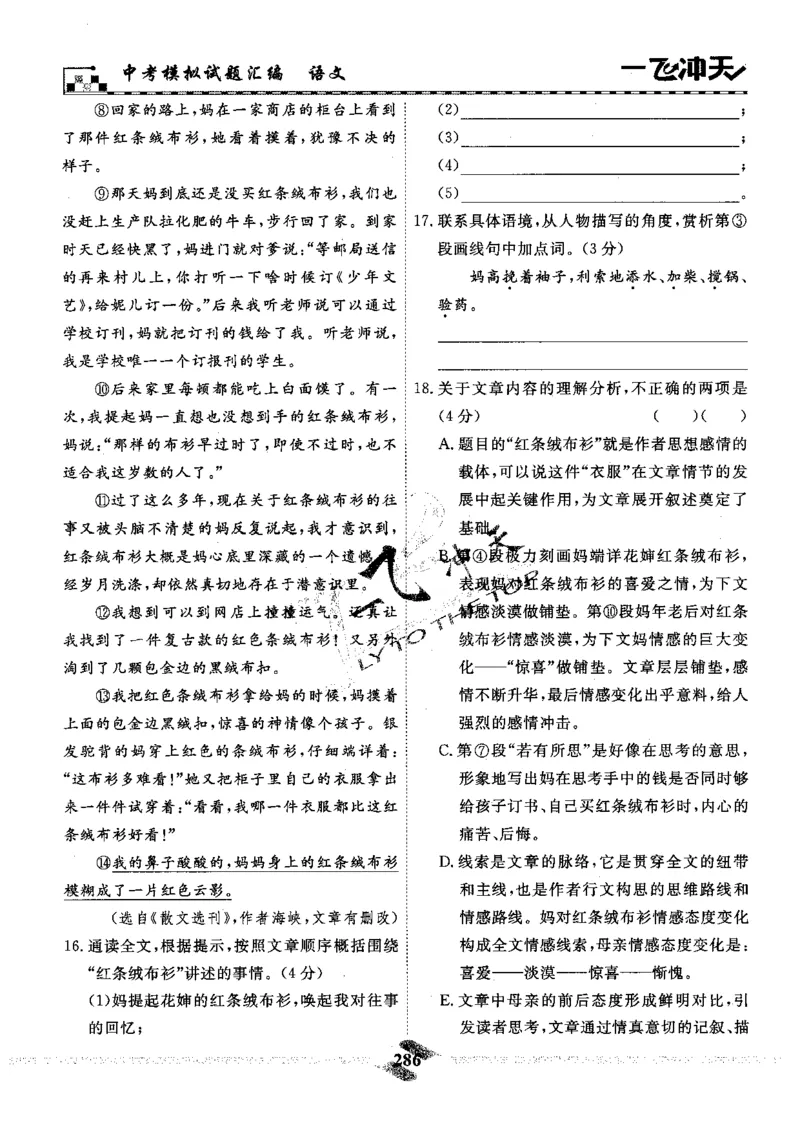 中考模拟试题汇编 语文
一飞冲天
⑧回家的路上,妈在一家商店的柜台上看到
了那件红条绒布衫,她看着摸着,犹豫不决的
样子。
⑨那天妈到底还是没买红条绒布衫,我们也
没赶上生产队拉化肥的牛车,步行回了家。到家
时天已经快黑了,妈进门就对爹说:“等邮局送信
的再来村儿上,你打听一下啥时候订《少年文
艺》,给妮儿订一份。”后来我听老师说可以通过
学校订刊,妈就把订刊的钱给了我。听老师说,
我是学校唯一一个订报刊的学生。
⑩后来家里每顿都能吃上白面馍了。有一
次,我提起妈一直想也没想到手的红条绒布衫,
妈说:“那样的布衫早过时了,即使不过时,也不
适合我这岁数的人了。”
⑪过了这么多年,现在关于红条绒布衫的往
事又被头脑不清楚的妈反复说起,我才意识到,
红条绒布衫大概是妈心底里深藏的一个遗憾,
经岁月洗涤,却依然真切地存在于潜意识里。
⑫我想到可以到网店上撞撞运气。还真让
我找到了一件复古款的红色条绒布衫!又另外
淘到了几颗包金边的黑绒布扣。
⑬我把红色条绒布衫拿给妈的时候,妈摸着
上面的包金边黑绒扣,惊喜的神情像个孩子。银
发驼背的妈穿上红色的条绒布衫,仔细端详着:
“这布衫多难看!”她又把柜子里自己的衣服拿出
来一件件试穿着:“看看,我哪一件衣服都比这红
条绒布衫好看!”
⑭我的鼻子酸酸的,妈妈身上的红条绒布衫
模糊成了一片红色云影。
(选自《散文选刊》,作者海峡,文章有删改)
16.通读全文,根据提示,按照文章顺序概括围绕
“红条绒布衫”讲述的事情。(4分)
(1)妈提起花婶的红条绒布衫,唤起我对往事
的回忆;
(2)                    ;
(3)                    ;
(4)                    ;
(5)                    。
17.联系具体语境,从人物描写的角度,赏析第③
段画线句中加点词。(3分)
妈高挽着袖子,利索地添水、加柴、搅锅、
验药。
18.关于文章内容的理解分析,不正确的两项是
(4分) (  )(  )
A.题目的“红条绒布衫”就是作者思想感情的
载体,可以说这件“衣服”在文章情节的发
展中起关键作用,为文章展开叙述奠定了
基础。
B.第④段极力刻画妈端详花婶红条绒布衫,
表现妈对红条绒布衫的喜爱之情,为下文
情感淡漠做铺垫。第⑩段妈年老后对红条
绒布衫情感淡漠,为下文妈情感的巨大变
化——“惊喜”做铺垫。文章层层铺垫,感
情不断升华,最后情感变化出乎意料,给人
强烈的感情冲击。
C.第⑦段“若有所思”是好像在思考的意思,
形象地写出妈在思考手中的钱是否同时够
给孩子订书、自己买红条绒布衫时,内心的
痛苦、后悔。
D.线索是文章的脉络,它是贯穿全文的纽带
和主线,也是作者行文构思的思维路线和
情感路线。妈对红条绒布衫情感态度变化
构成全文情感线索,母亲情感态度变化是:
喜爱——淡漠——惊喜——惭愧。
E.文章中母亲的前后态度形成鲜明对比,引
发读者思考,文章通过情真意切的记叙、描
286